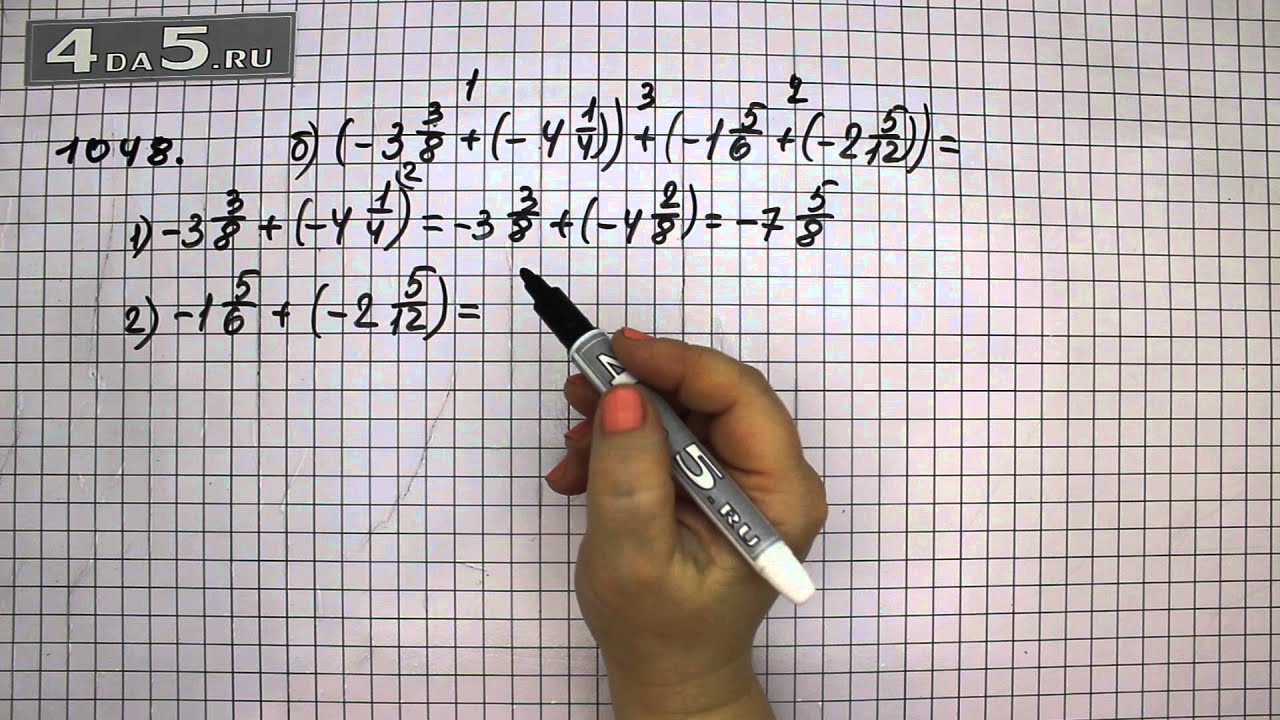 4DA5.RU
1048. б) (-3 3/8 + (-4 1/4)) + (-1 5/6 + (-2 5/12)) =
1 3 2
1) -3 3/8 + (-4 1/4) = -3 3/8 + (-4 2/8) = -7 5/8
(2
2) -1 5/6 + (-2 5/12) =
5.RU